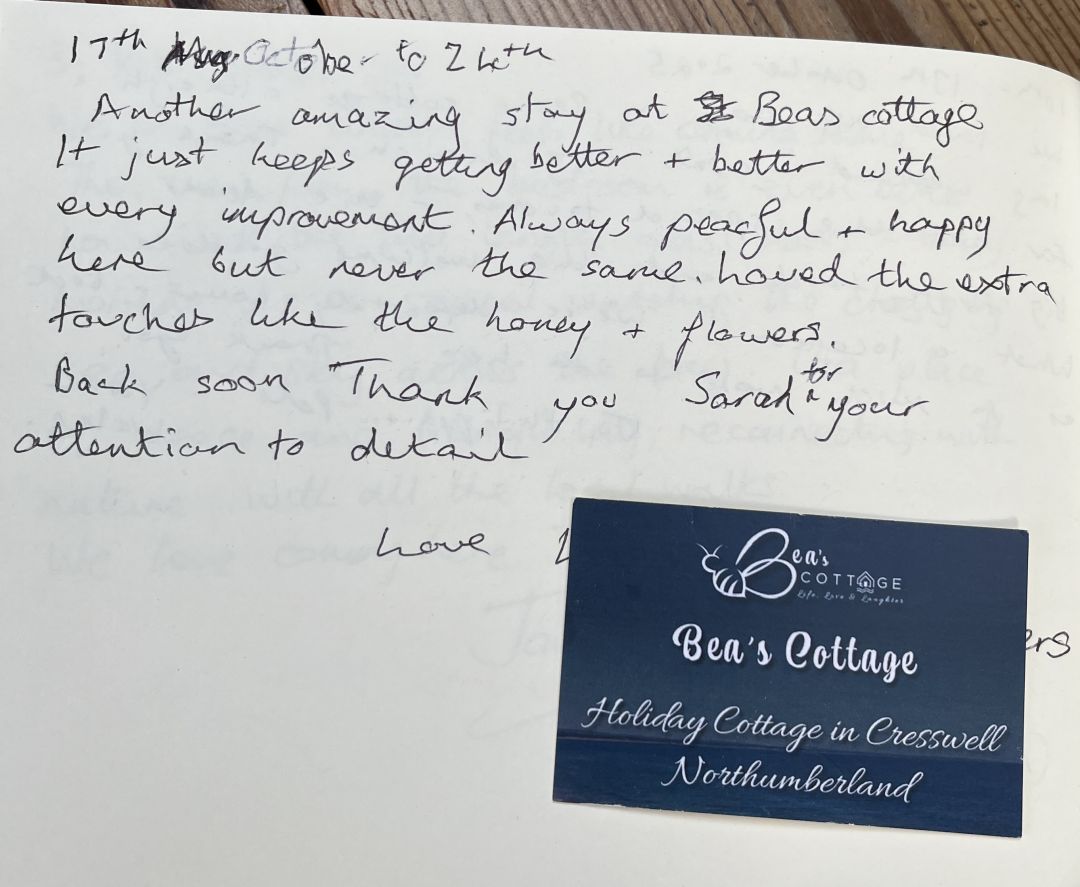 17th October to 24th
Another amazing stay at Beas cottage
It just keeps getting better + better with
every improvement. Always peacful + happy
here but never the same. Loved the extra
touches like the honey + flowers.
Back soon Thank you Sarah for your
attention to detail
Love
ers
Bea's
COTTAGE
Life, Love & Laughter
Bea's Cottage
Holiday Cottage in Cresswell
Northumberland